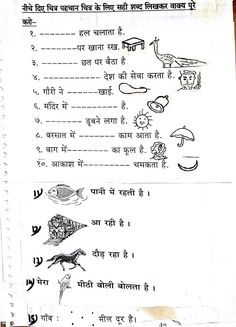 नीचे दिए चित्र पहचान चित्र के लिए सही शब्द लिखकर वाक्य पूरे
करो-
१. --------- हल चलाता है.
२. --------पर खाना रख.
३. --------- छत पर बैठा है
४. ----------- देश की सेवा करता है.
५. गौरी ने -------खाई.
६. मंदिर में -------- है.
७. -------- डूबने लगा है.
८. बरसात में -------- काम आता है.
९. बाग में-------- का फूल है.
१०. आकाश में ---------- चमकता है.
11) पानी में रहती है ।
12) आ रही है ।
13) दौड़ रहा है ।
14) मेरा मीठी बोली बोलता है ।
15) गाँव मील दूर है ।